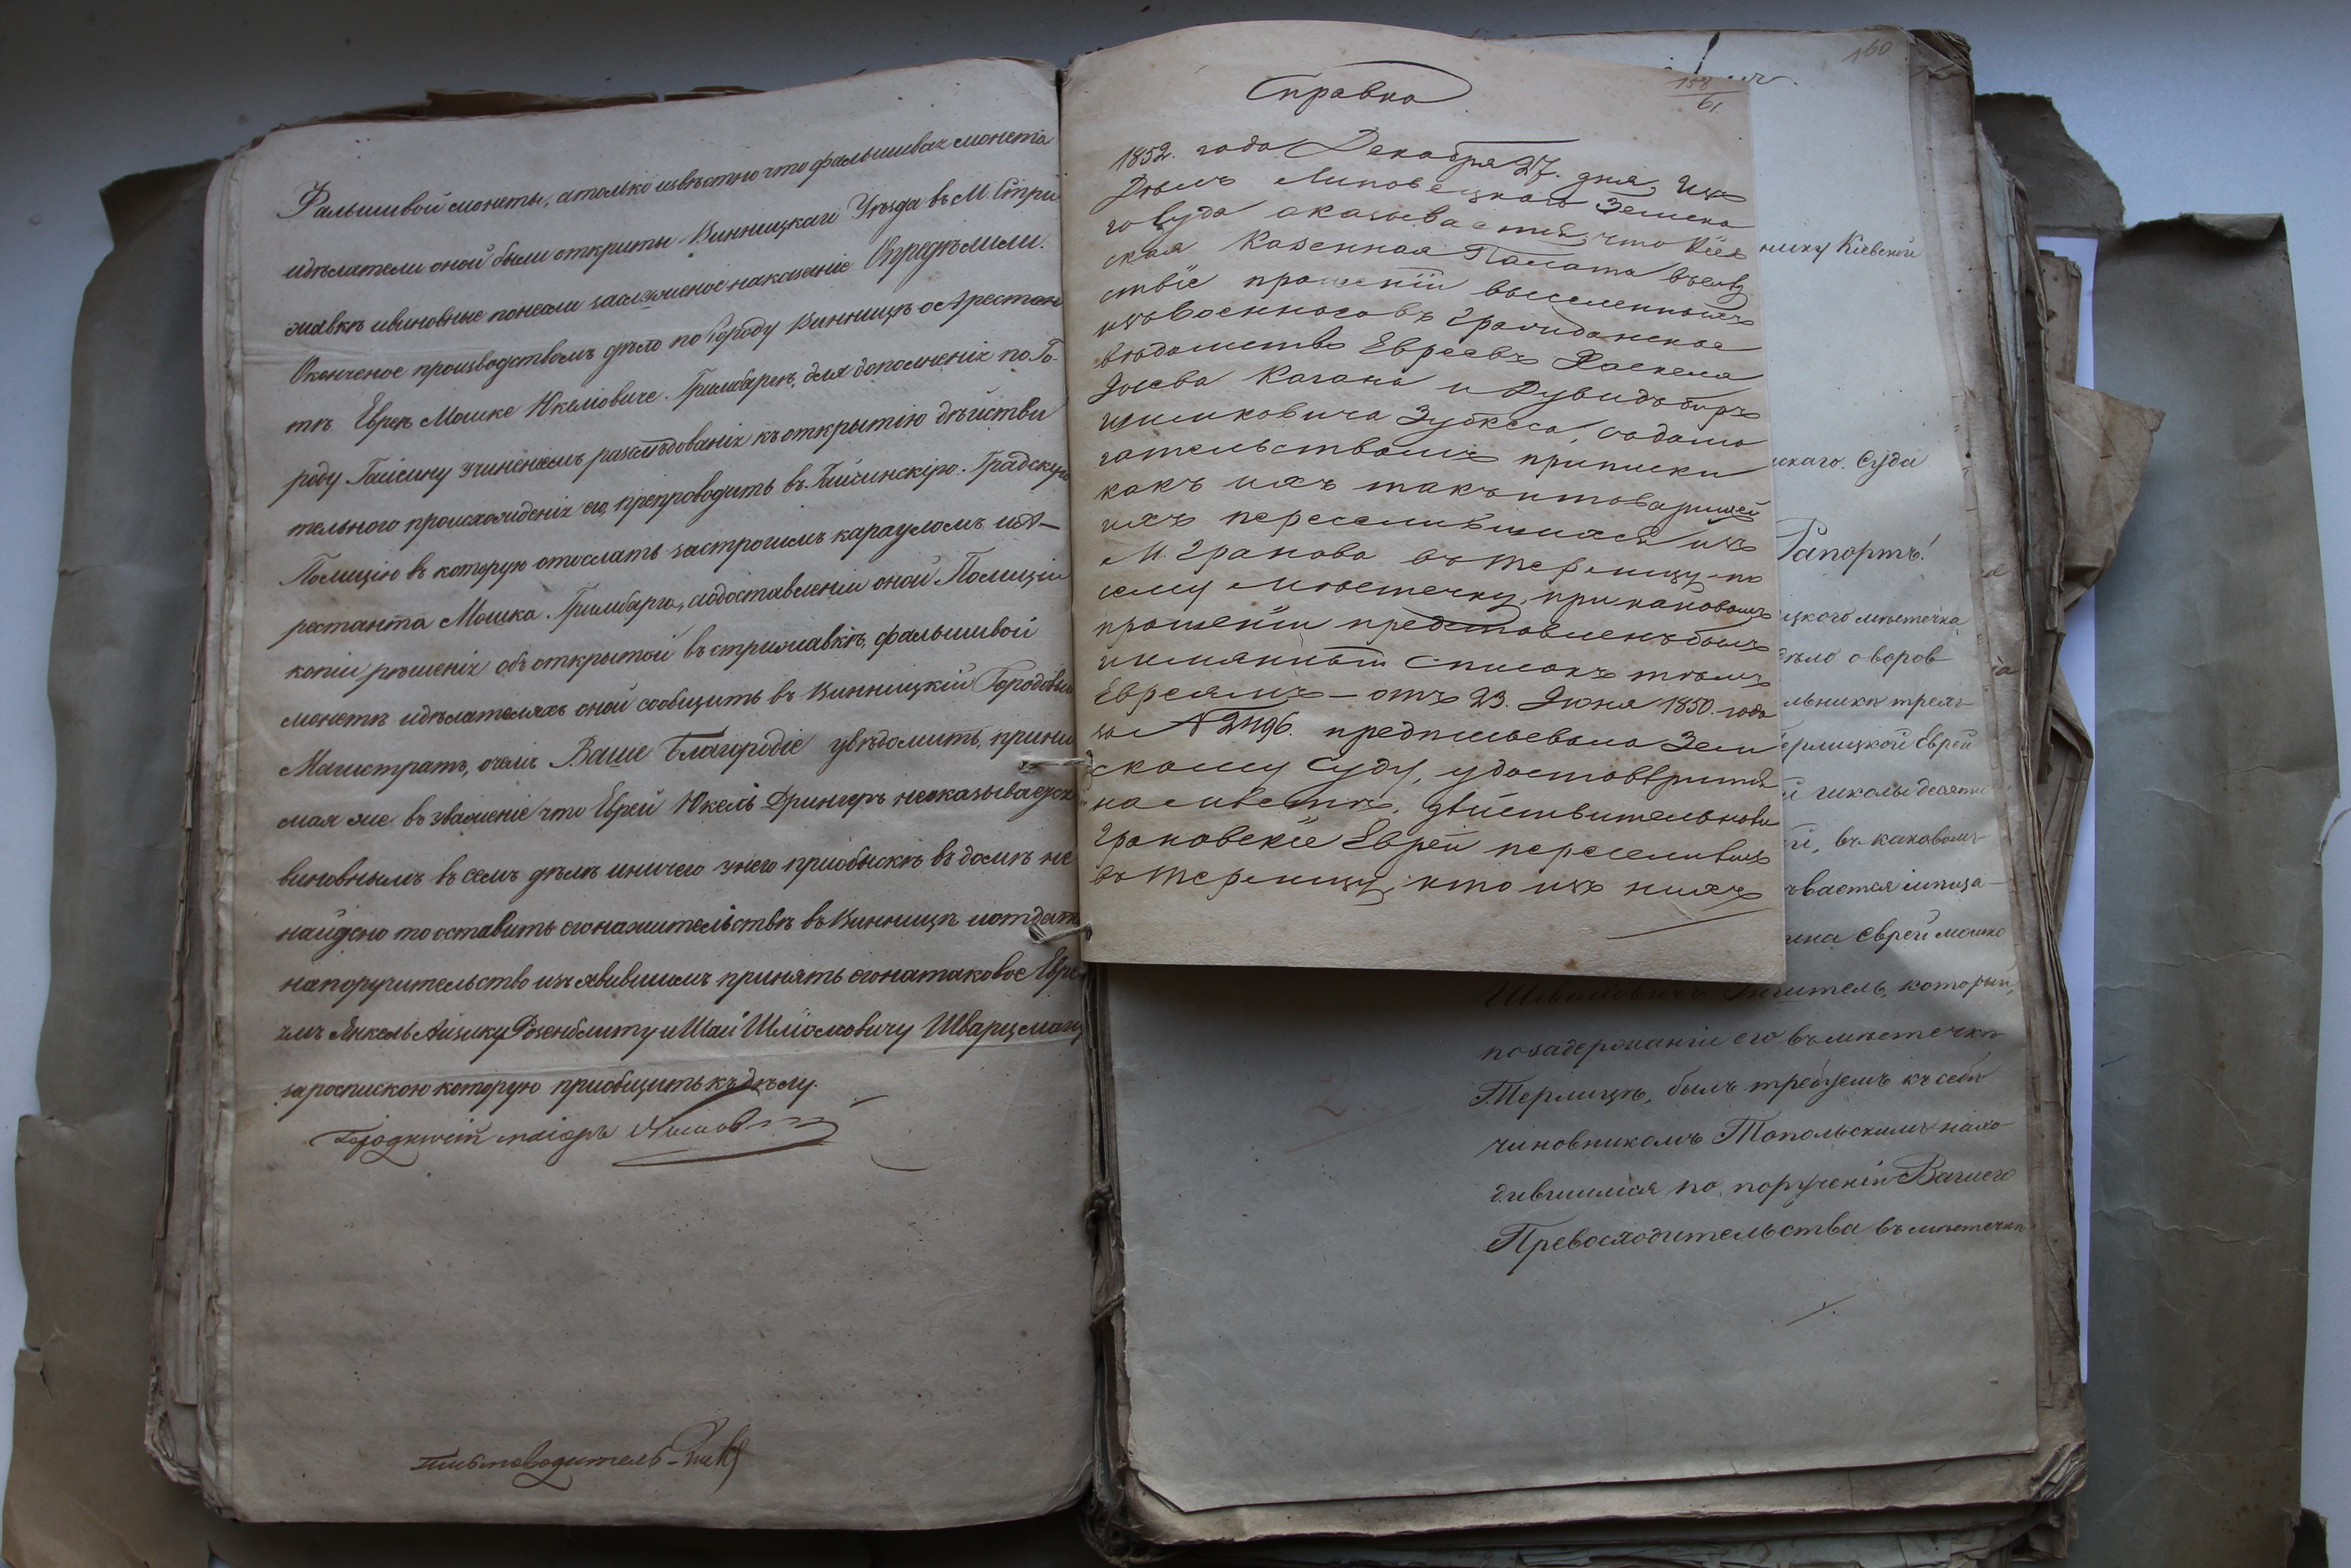 Фальшивой монеты, атолько извѣстно что фальшивая монета
идѣлатели оной были открыты Винницкаго Уѣзда въ М. Стри
жавкѣ ивиновные понесли заслуженое наказаніе Опредѣлили.
Оконченое производствомъ дѣло по Городу Винницѣ о Арестан
тѣ Евреѣ Мошке Юкелювиче Гринбергѣ, для дополненія по Го-
роду Гайсину учиненнемъ разслѣдованія къоткрытію дѣйстви
тельного происхожденія его, препроводить въ Гайсинскую Градскую
Полицію въ которую отослать застрогимъ карауломъ иА-
рестанта Мошка Гринберга, одоставленіи оной Полиціи
копіи рѣшенія объ открытой въ стрижавкѣ, фальшивой
монетѣ идѣлателяхъ оной сообщить въ Винницкій Городовый
Магистратъ, очемъ Ваше Благородіе увѣдомить, прини
мая же въ уваженіе что Еврей Юкель Дрингеръ неоказывается
виновнымъ въ семъ дѣлѣ иничего унего приобыскѣ въ домѣ не
найдено то оставить его нажительствѣ въ Винницѣ иотдать
напоручительство изъявившимъ принять его натаковое Евре-
ямъ Янкель Айзику Розенблиту и Шаи Шліомовичу Шварцману
зароспискою которую приобщить къ дѣлу.
Городничій маіоръ
Письмоводитель
160
158
61
Справка
1852. года Декабря 27. дня, Изъ
Дѣлъ Липовецкаго Земска
го Суда оказывается, что Кіев
ская Казенная Палата въслѣд
ствіе прошеніи выселенныхъ
изъ Военнаго въ Гражданское
вѣдомство Евреевъ Хаскеля
Іосева Кагана и Дувидъ Беръ
Ицковича Зубкеса, одома
гательствомъ приписки
какъ ихъ такъ итоварищей
ихъ переселившихся изъ
М. Гранова въ Терлицу-по
сему мѣстечку, прикаковомъ
прошеніи представленъ былъ
имянный Списокъ тѣмъ
Евреямъ – отъ 23. Іюня 1850 года
за № 21196. предписывала Зем
скому Суду, удостовѣрится
намѣстѣ, дѣйствительноли
Грановскіе Евреи переселились
въ Терлицу, кто изъ нихъ
нику Кіевской
скаго Суда
Рапортъ!
цкого мѣстечка
дѣло о воров
льника трехъ
ерлицкой Еврей
й школы десяти
ій, въ каковомъ
ывается иписа-
ина Еврей мошко
учитель, который,
позадержаніи его въ мѣстечкѣ
Терлицѣ, былъ требуемъ къ себѣ
чиновникомъ Топольскимъ нахо-
дившимся по порученіи Вашего
Превосходительства въ мѣстечкѣ